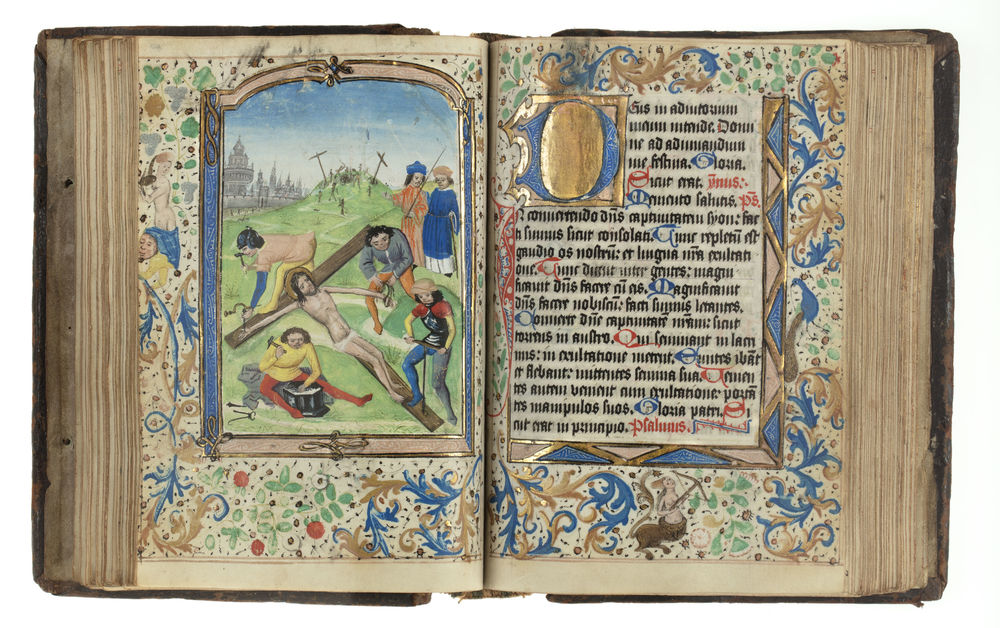 DEus in adiutorium
meum intende. Domi
ne ad adiuuandum
me festina. Gloria.
Sicut erat. ymnus:
Memento salutis. ps.
N conuertendo dns captiuitatem syon: fac
ti sumus sicut consolati. Tunc repletu est
gaudio os nostru: et lingua nra exultati
one. Tunc dicent inter gentes: magni
ficauit dns facere cu eis. Magnificauit
dns facere nobiscu: facti sumus letantes.
Conuerte dne captiuitate nram: sicut
torrens in austro. Qui seminant in lacri
mis: in exultatione metent. Euntes ibat
et flebant: mittentes semina sua. Uenien
tes autem uenient cum exultatione: portan
tes manipulos suos. Gloria patri. Si
cut erat in principio. Psalmus.